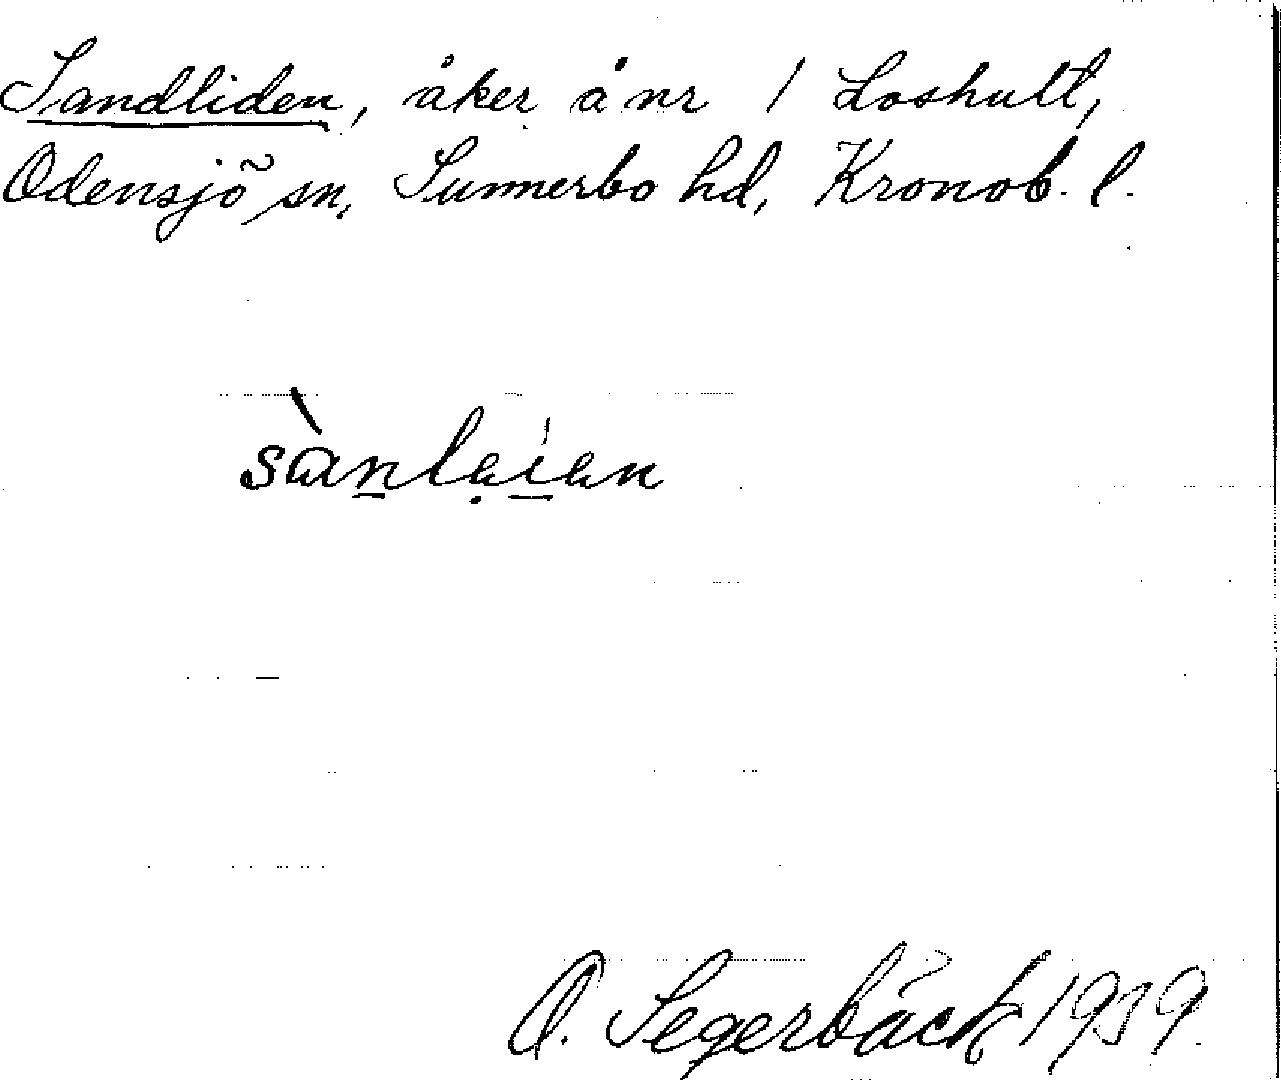 Sandliden, åker å nr 1 Loshult,
Odensjö sn, Sunnerbo hd, Kronob. l.
O. Segerbäck 1939.